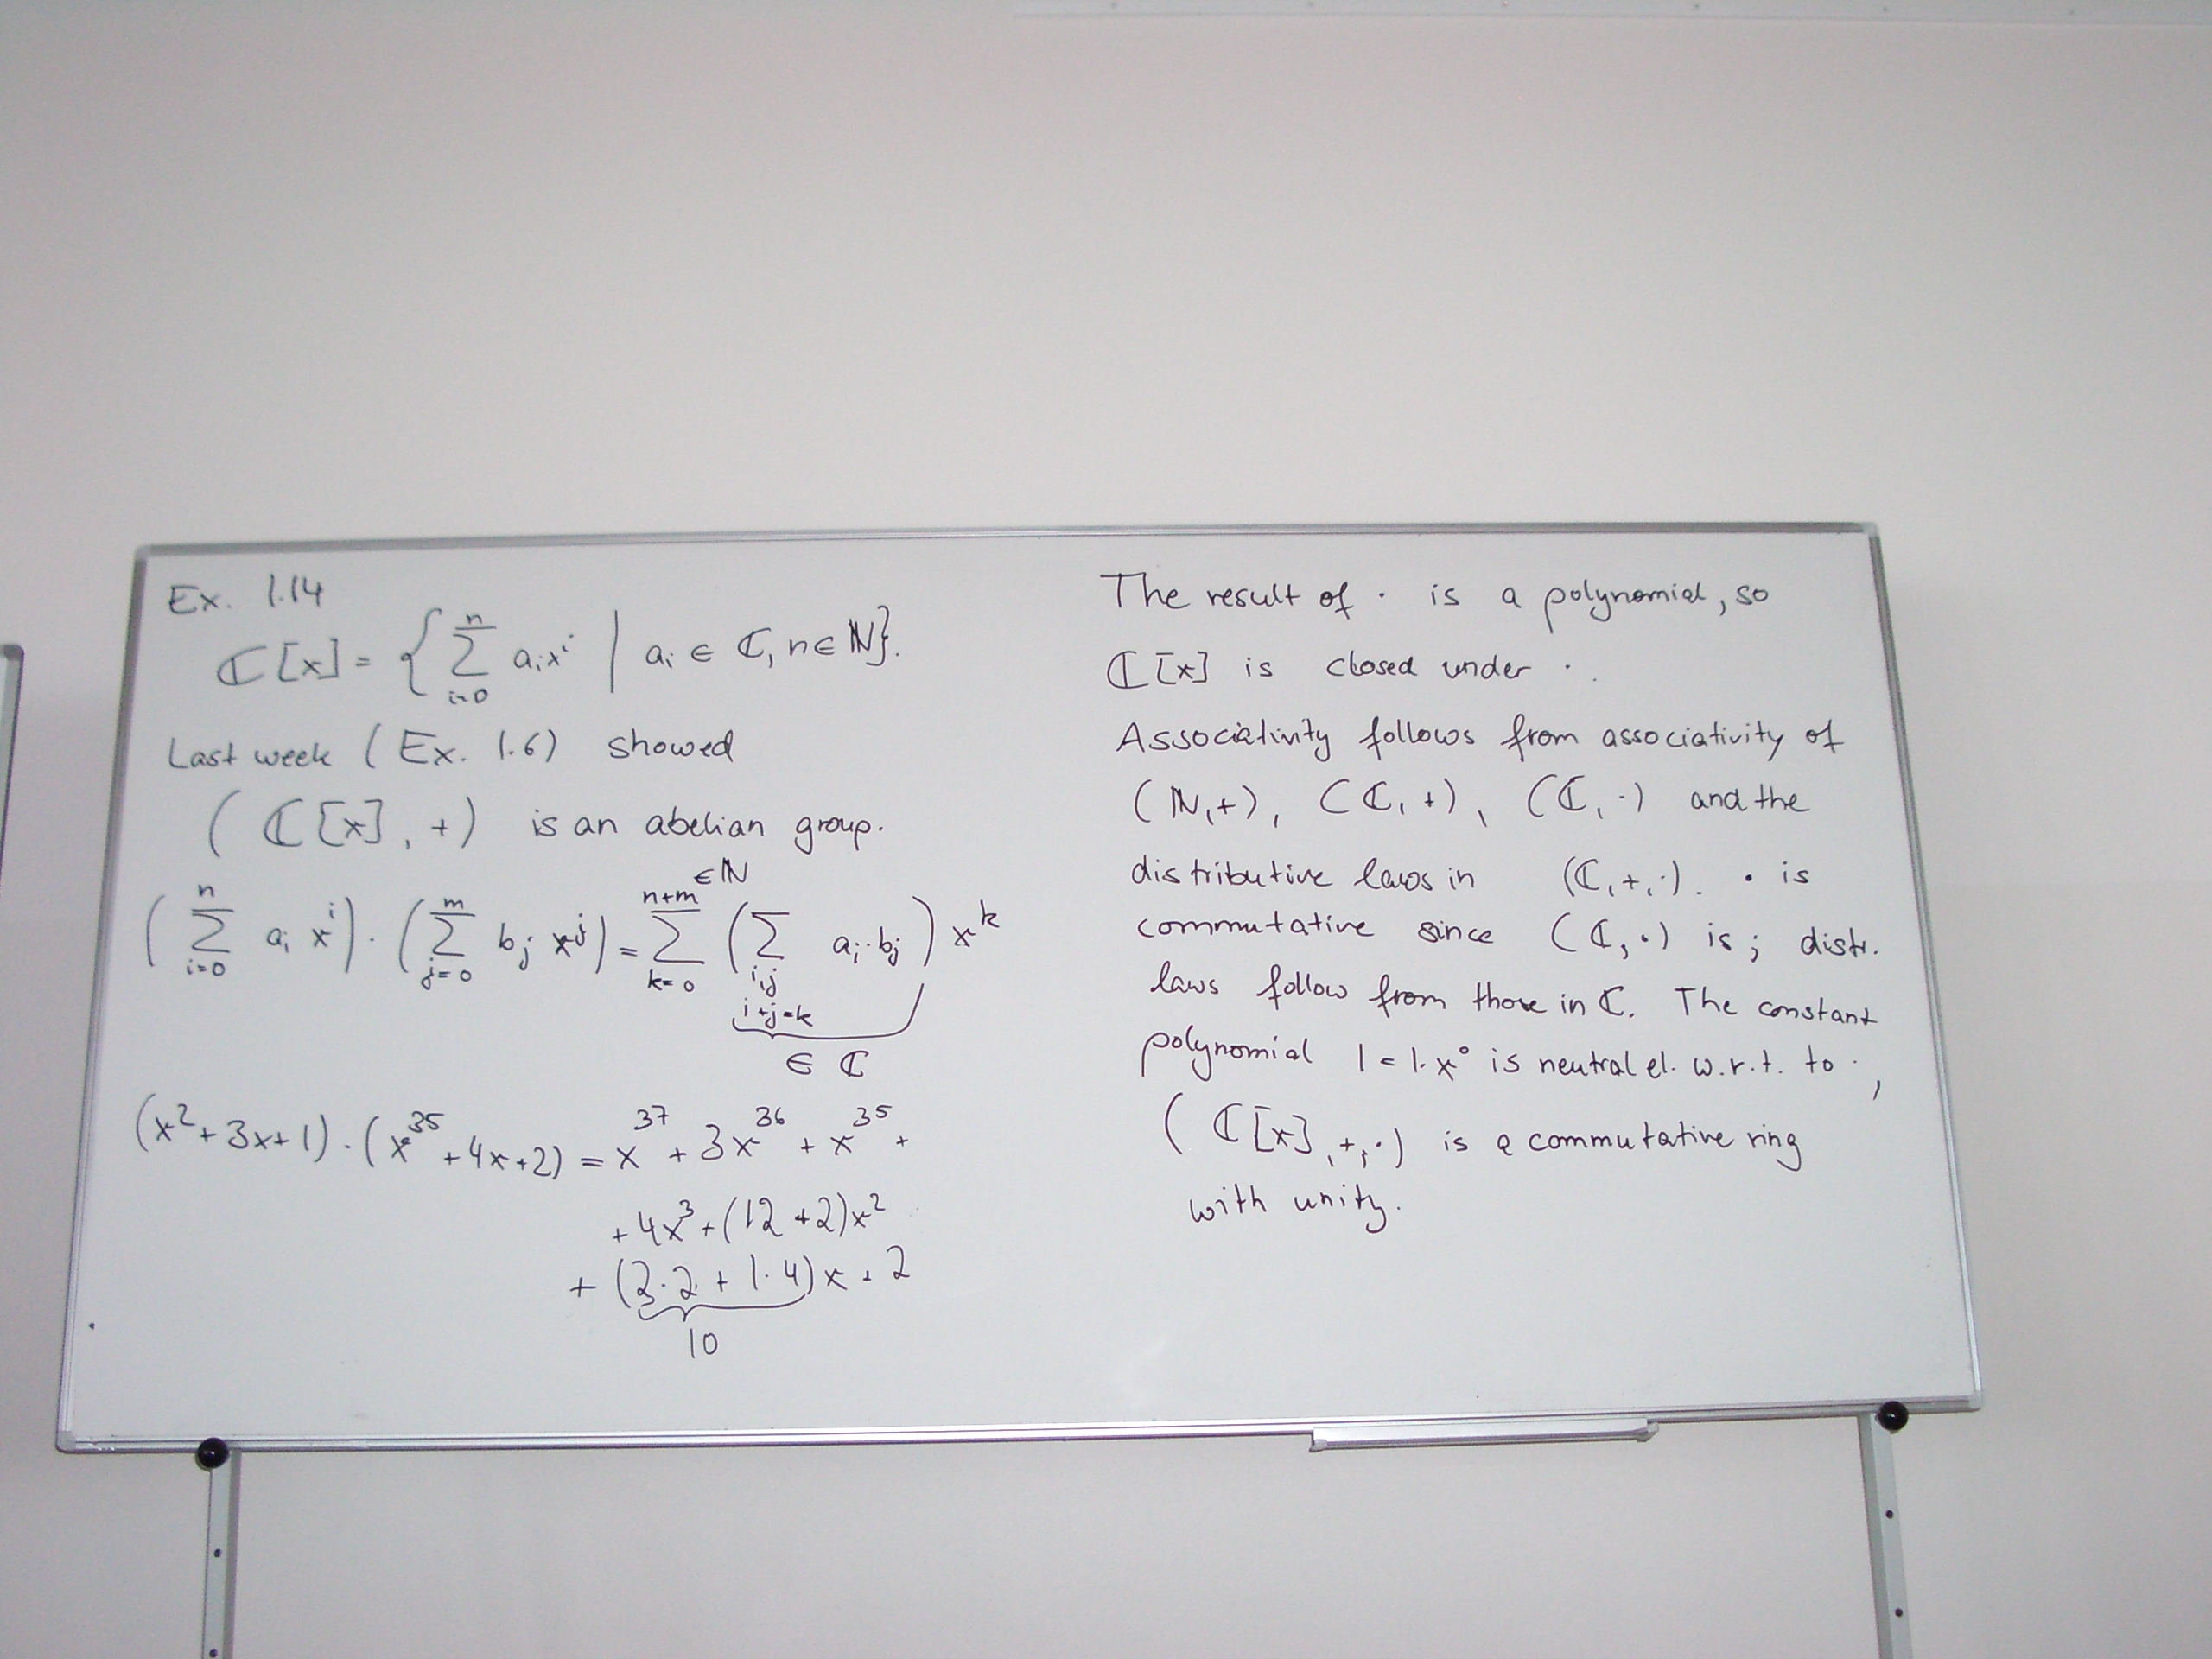 Ex. 1.14
ℂ[x] = { ∑_{i=0}^{n} a_i x^i | a_i ∈ ℂ, n ∈ ℕ}.
Last week (Ex. 1.6) showed
(ℂ[x], +) is an abelian group.
(∑_{i=0}^{n} a_i x^i) · (∑_{j=0}^{m} b_j x^j) = ∑_{k=0}^{n+m ∈ ℕ} (∑_{i,j i+j=k} a_i · b_j) x^k
∈ ℂ
(x² + 3x + 1) · (x³⁵ + 4x + 2) = x³⁷ + 3x³⁶ + x³⁵ +
+ 4x³ + (12 + 2)x²
+ (3·2 + 1·4)x + 2
10
The result of · is a polynomial, so
ℂ[x] is closed under ·.
Associativity follows from associativity of
(ℕ, +), (ℂ, +), (ℂ, ·) and the
distributive laws in (ℂ, +, ·). · is
commutative since (ℂ, ·) is; distr.
laws follow from those in ℂ. The constant
polynomial 1 = 1·x⁰ is neutral el. w.r.t. to ·,
(ℂ[x], +, ·) is a commutative ring
with unity.